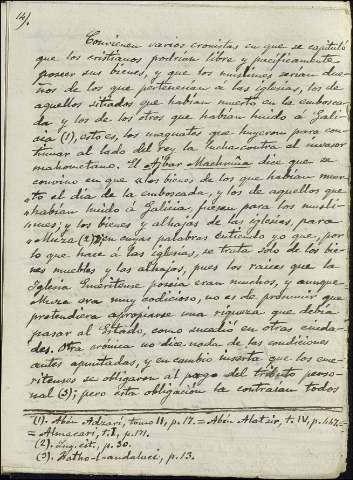 14).
Convienen varios cronistas en que se capituló
que los cristianos podrían libre y pacíficamente
poseer sus bienes, y que los muslimes serían due-
ños de los que pertenecían á las iglesias, los de
aquellos sitiados que habían muerto en la embosca-
da y los de los otros que habían huido á Gali-
cia (1), esto es, los magnates que huyeron para con-
tinuar al lado del rey la lucha contra el invasor
mahometano. El Ajbar Machmúa dice que se
convino en que «los bienes de los que habían muer-
»to el día de la emboscada, y los de aquellos que
»habían huido á Galicia, fuesen para los musli-
»mes; y los bienes y alhajas de las iglesias, para
»Muza (2)», en cuyas palabras entiendo yo que, por
lo que hace á las iglesias, se trata sólo de los bie-
nes muebles y las alhajas, pues los raíces que la
Iglesia Emeritense poseía eran muchos, y aunque
Muza era muy codicioso, no es de presumir que
pretendiera apropiarse una riqueza que debía
pasar al Estado, como sucedió en otras ciuda-
des. Otra crónica no dice nada de las condiciones
antes apuntadas, y en cambio inserta que los eme-
ritenses se obligaron al pago del tributo perso-
nal (3); pero esta obligación la contraían todos
(1). Abén Adzarí, tomo II, p. 17. = Abén Alatsir, t. IV, p. 447. =
= Almacarí, t. I, p. 171.
(2). Lug. cit., p. 30.
(3). Fatho-l-andaluci, p. 13.